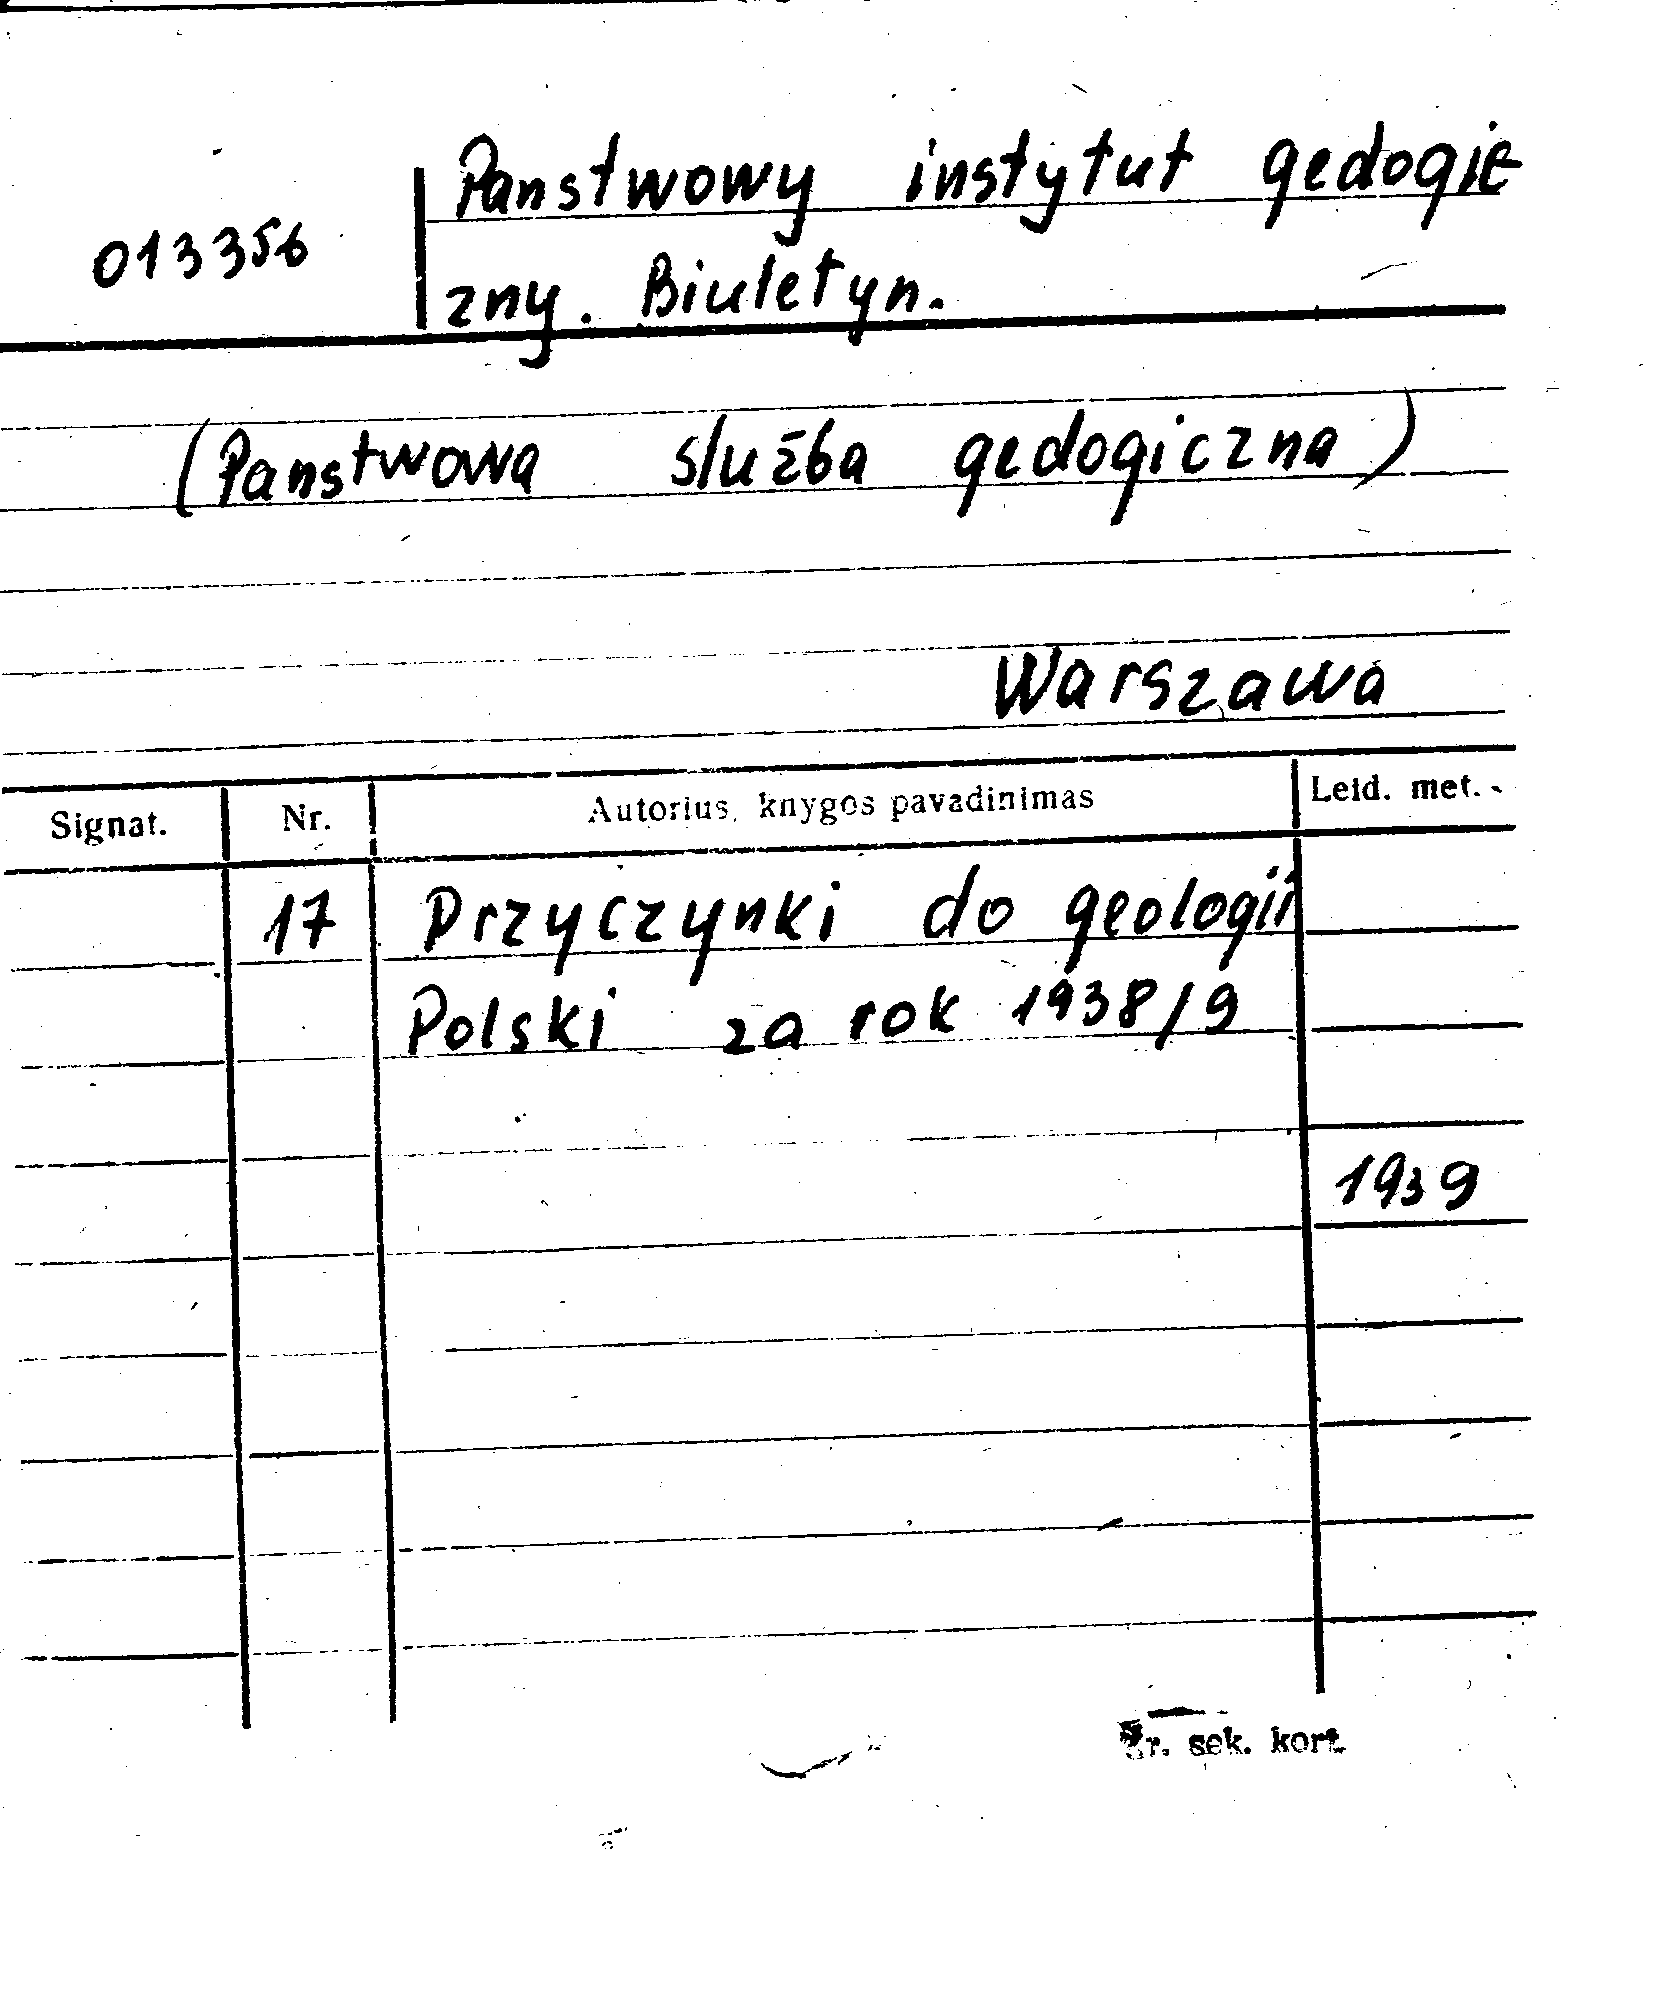 Panstwowy instytut geologic
013356
zny. Biuletyn.
(Panstwowa służba geologiczna)
Warszawa
Signat. Nr. Autorius, knygos pavadinimas Leid. met.
17 Przyczynki do geologii
Polski za rok 1938/9
1939
Žr. sek. kort.